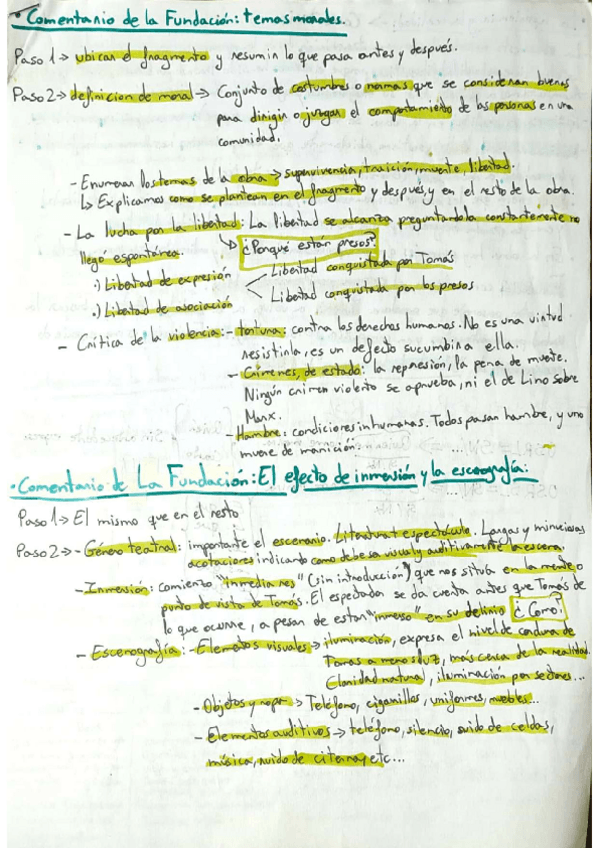 • Comentario de la Fundación: temas morales.
Paso 1 -> ubicar el fragmento y resumir lo que pasa antes y después.
Paso 2 -> definicion de moral -> Conjunto de costumbres o normas que se consideran buenas
para dirigir o juzgar el comportamiento de las personas en una
comunidad.
- Enumerar los temas de la obra -> supervivencia, traición, muerte, libertad.
↳ Explicamos como se plantean en el fragmento y después, y en el resto de la obra.
- La lucha por la libertad: La libertad se alcanza preguntandola constantemente no
llego espontánea. ↳ ¿Porqué están presos?
·) Libertad de expresión < Libertad conquistada por Tomás
·) Libertad de asociación Libertad conquistada por los presos
- Crítica de la violencia: - tortura: contra los derechos humanos. No es una virtud
resistirla, es un defecto sucumbir a ella.
- Crímenes de estado: la represión, la pena de muerte.
Ningún crimen violento se aprueba, ni el de Lino sobre
Max.
- Hambre: condiciones inhumanas. Todos pasan hambre, y uno
muere de
• Comentario de La Fundación: El efecto de inmersión y la escenografía:
Paso 1 -> El mismo que en el resto
Paso 2 -> - Género teatral: importante el escenario. Literatura + espectáculo. Largas y minuciosas
acotaciones indicando como debe sa visual y auditivamente la escena.
- Inmersión: comienzo "inmedia res" (sin introducción) que nos situa en la mente o
punto de vista de Tomás. El espectador se da cuenta antes que Tomás de
lo que ocurre, a pesar de estar "inmerso" en su delirio ¿Como?
- Escenografía: - Elementos visuales -> iluminación, expresa el nivel de cordura de
Tomas a menos luz, más cerca de la realidad.
Claridad natural, iluminación por sectores...
- Objetos y ropa -> Teléfono, cigarrillos, uniformes, muebles...
- Elementos auditivos -> teléfono, silencio, ruido de celdas,
música, ruido de cisterna, etc...